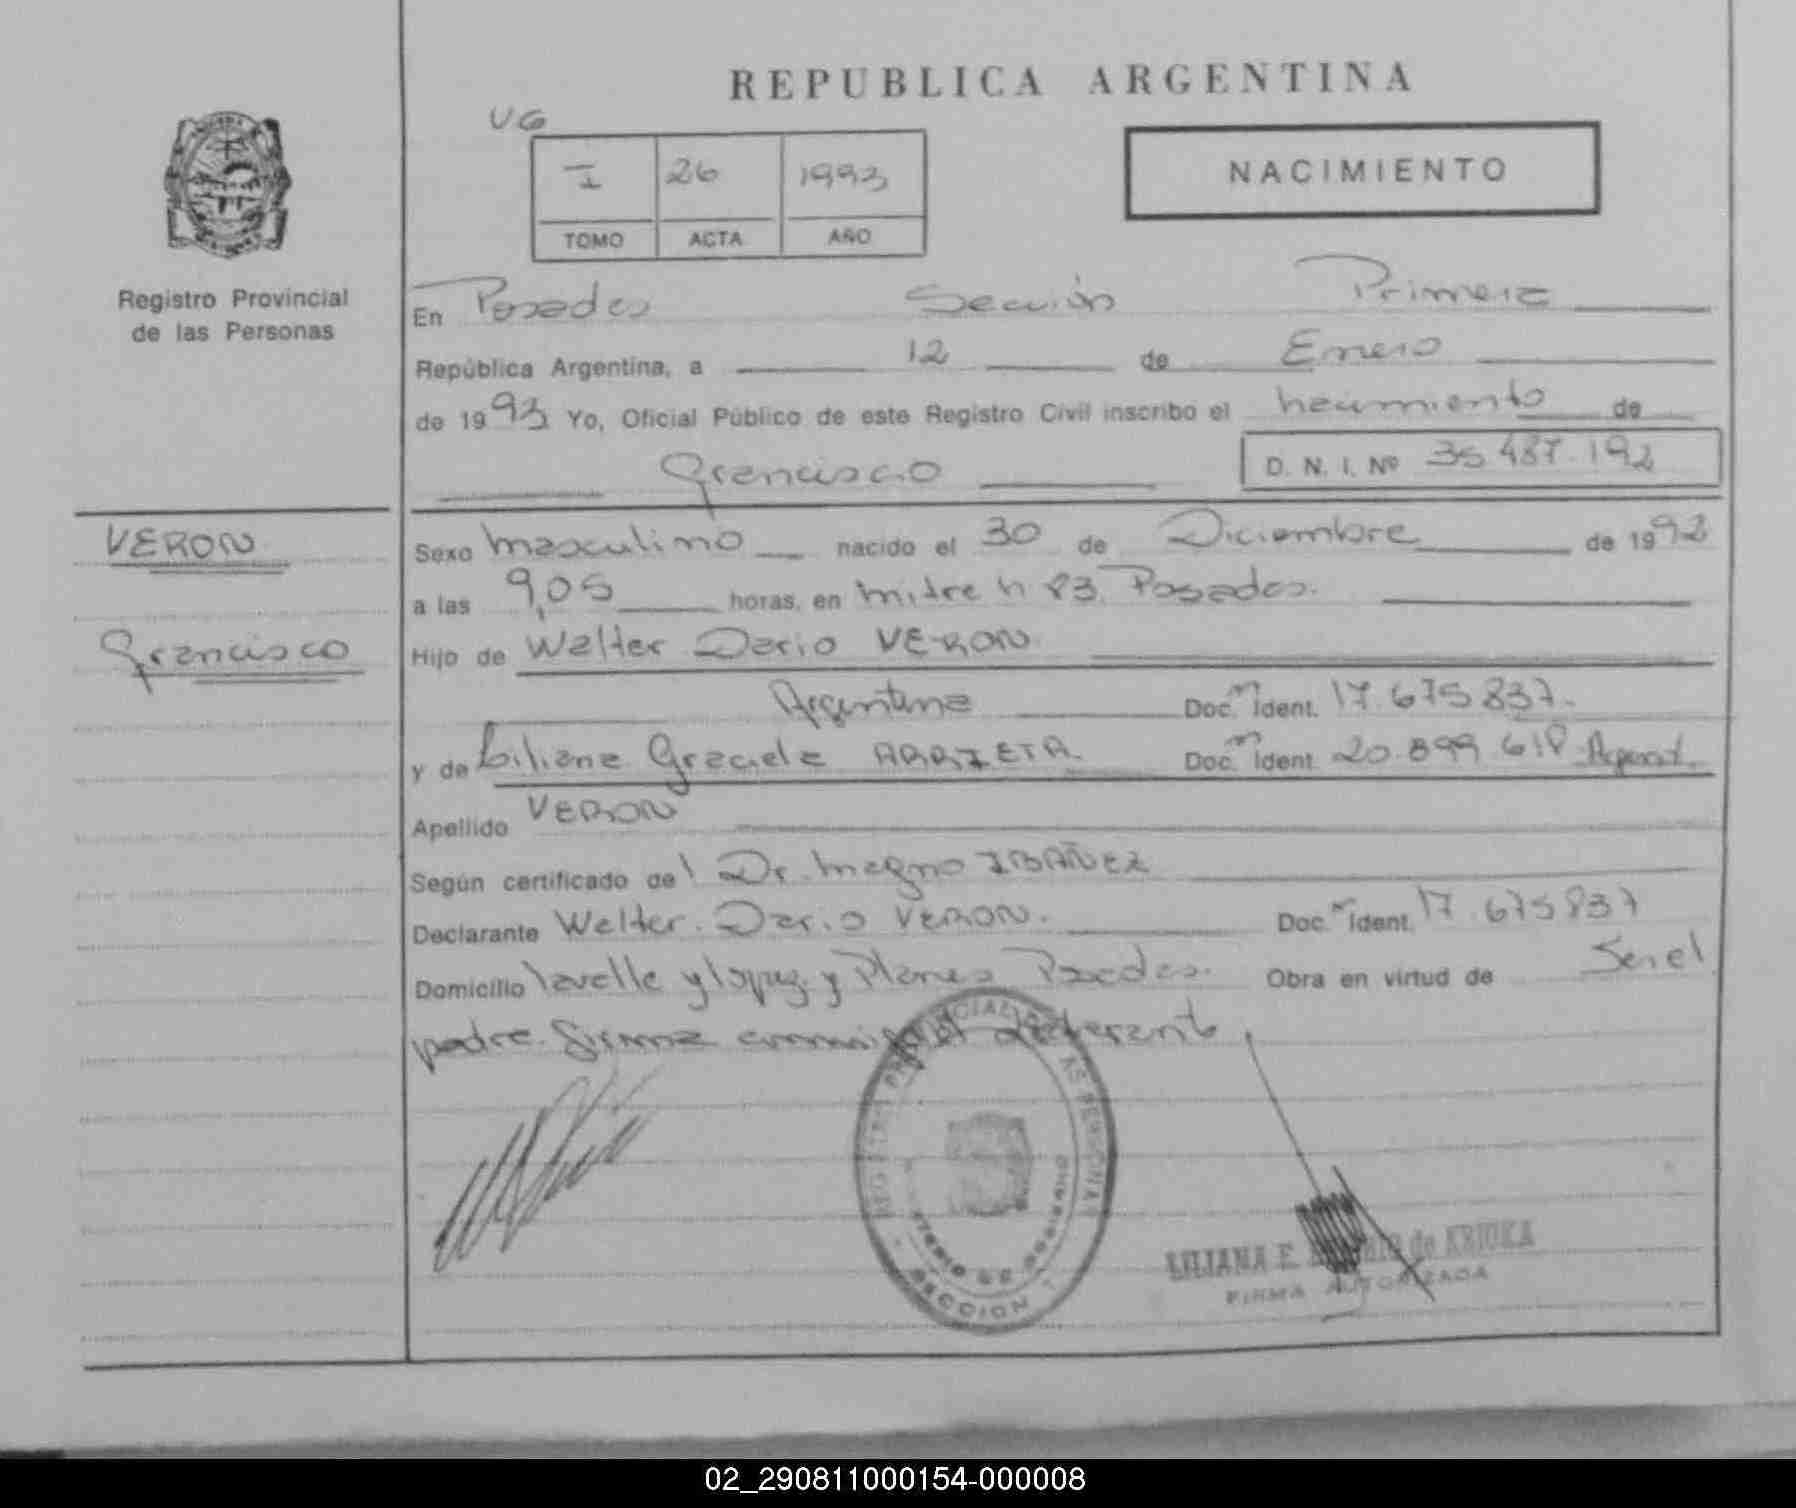 REPUBLICA ARGENTINA
UG
I 26 1993
TOMO ACTA AÑO
NACIMIENTO
Registro Provincial
de las Personas
En Posadas Sección Primera
República Argentina, a 12 de Enero
de 1993 Yo, Oficial Público de este Registro Civil inscribo el nacimiento de
Francisco D. N. I. Nº 35 487.192
VERON
Francisco
Sexo masculino nacido el 30 de Diciembre de 1992
a las 9,05 horas, en Mitre n 83. Posadas.
Hijo de Walter Dario VERON
Argentina Doc. Ident. 17.675 837.
y de Liliana Graciela ARRIETA Doc. Ident. 20.899.618 Argent.
Apellido VERON
Según certificado del Dr. Magno IBAÑEZ
Declarante Walter Dario VERON. Doc. Ident. 17.675837
Domicilio lavalle y lopez y Planes Posadas. Obra en virtud de Ser el
padre. Firma el declarante
REGISTRO PROVINCIAL DE LAS PERSONAS
SECCION 1
LILIANA E. de
FIRMA AUTORIZADA
02_290811000154-000008